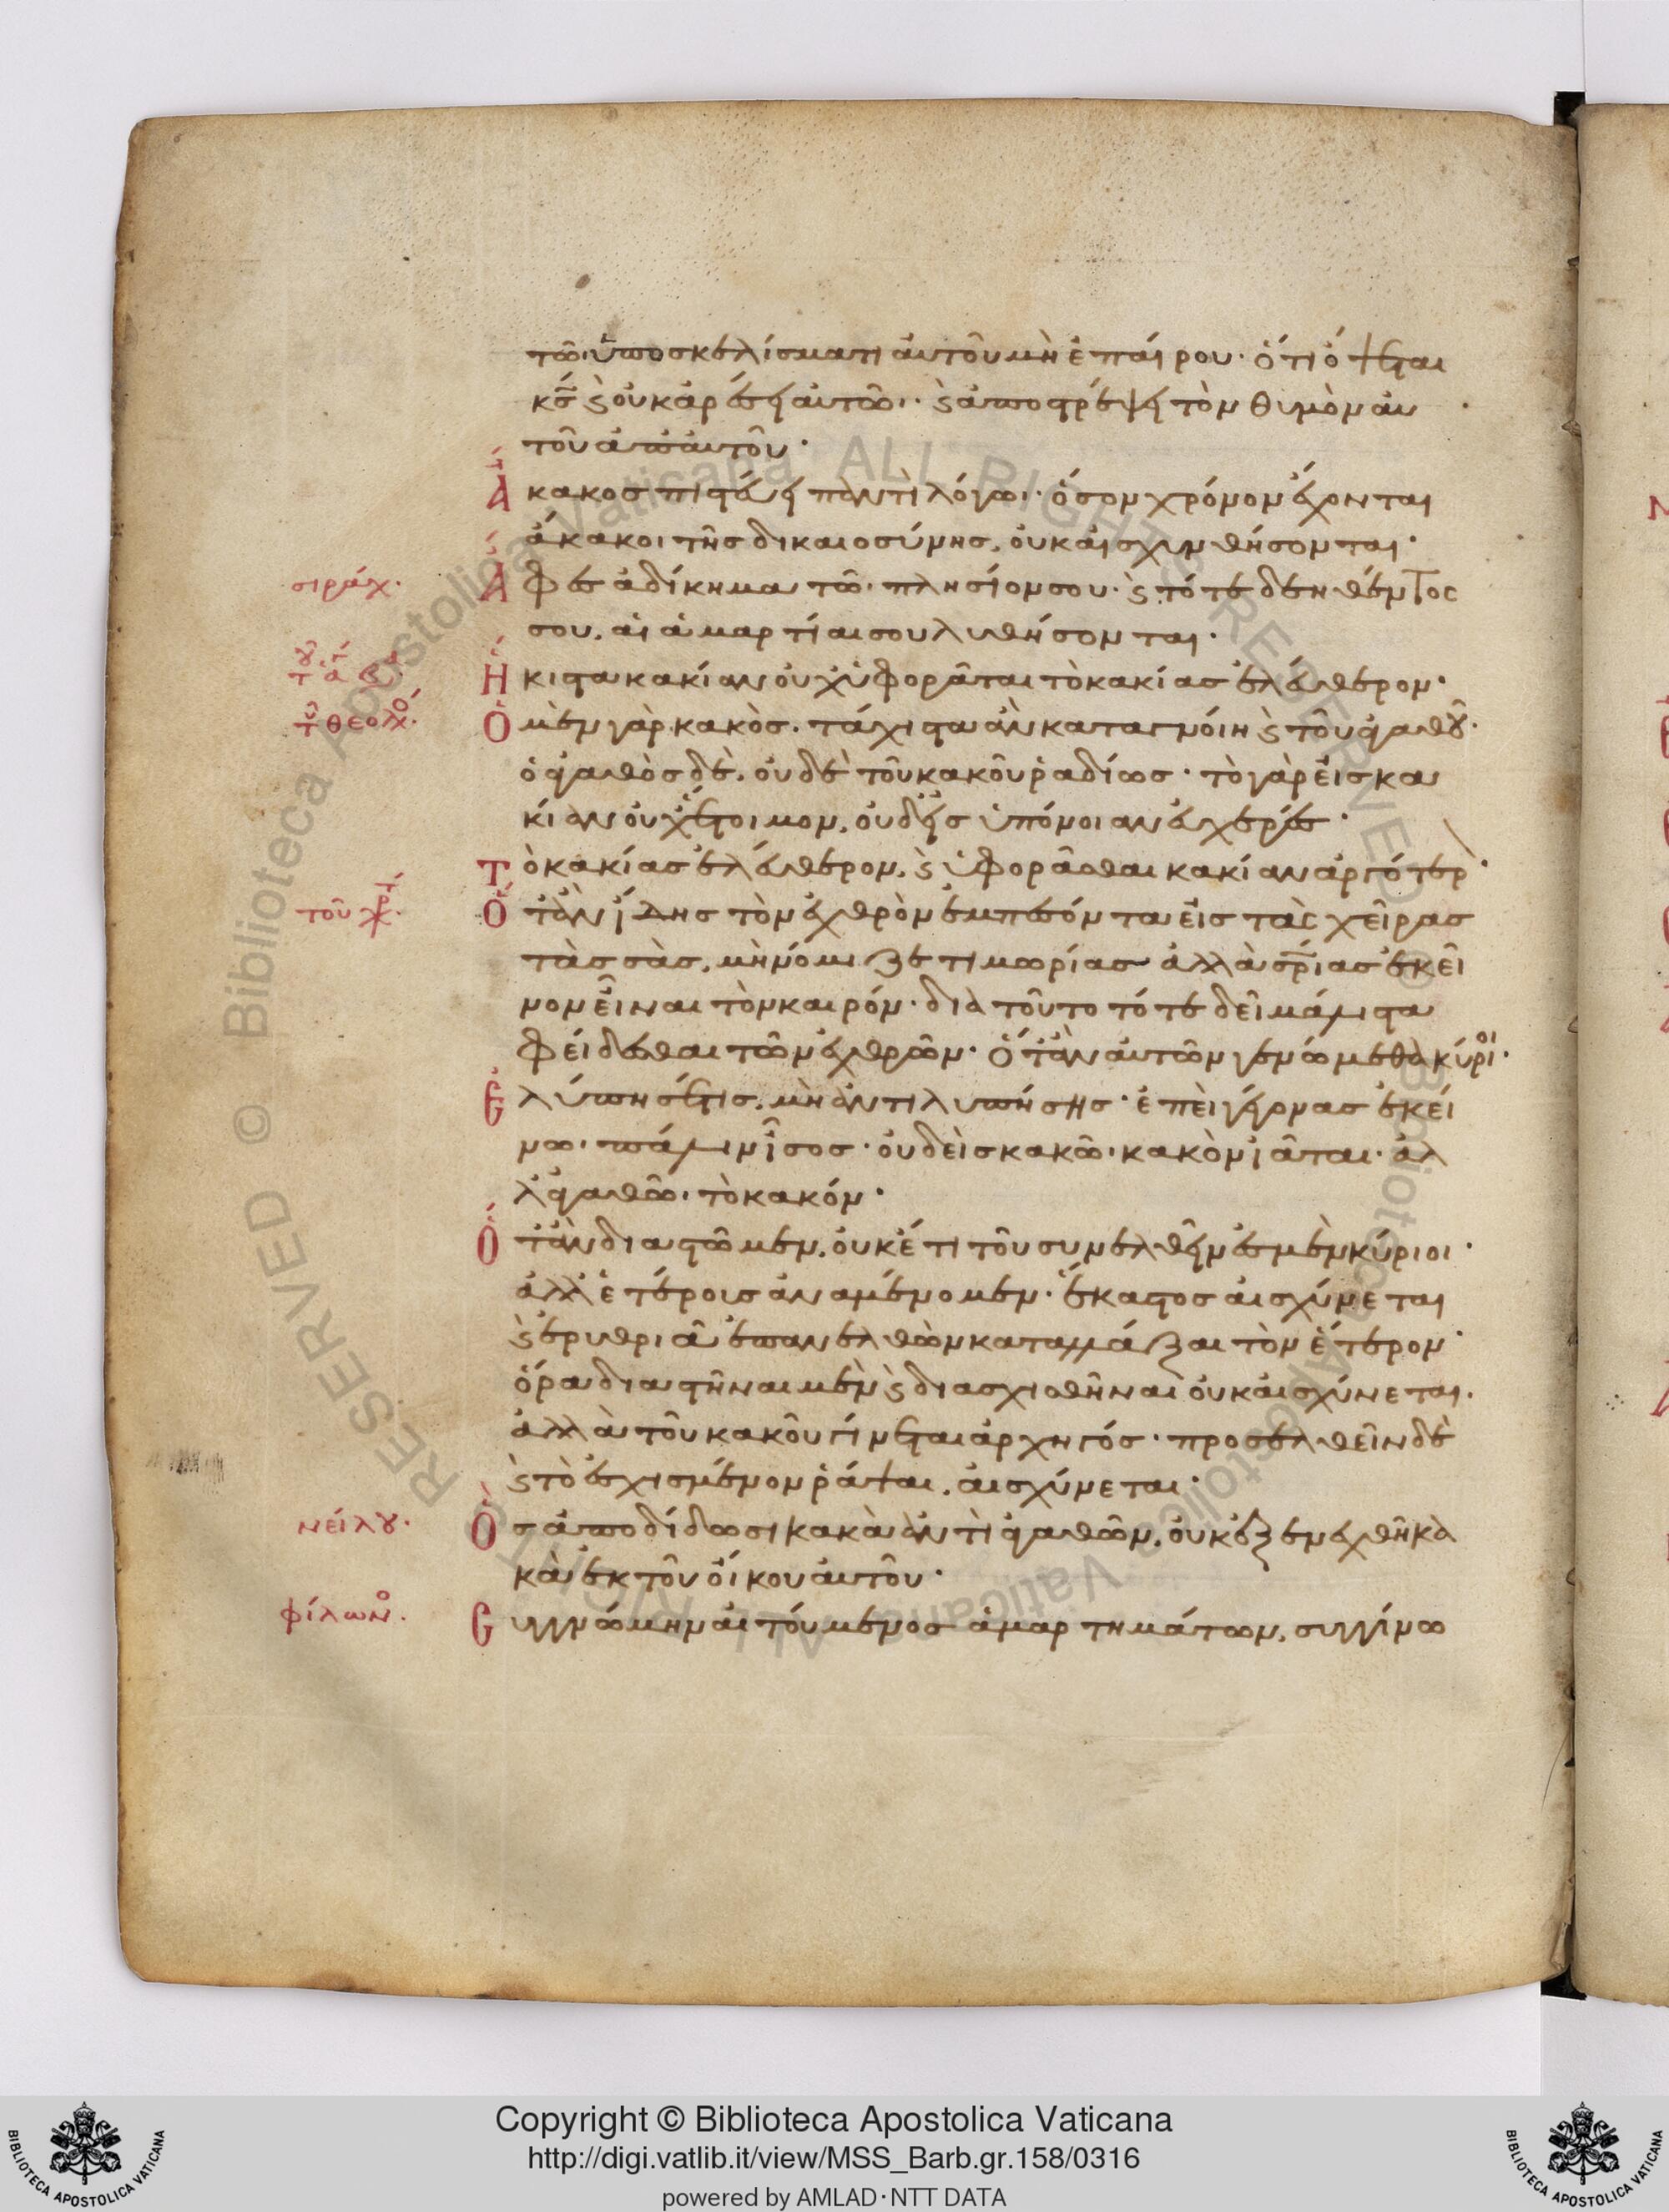 τῶι ὑποσκελίσματι αὐτοῦ μὴ ἐπαίρου· ὅτι ὄψεται
κς̅ ϗ οὐκ ἀρέσει αὐτῶι· ϗ ἀποστρέψει τὸν θυμὸν αὐ
τοῦ ἀπ' αὐτοῦ·
Ἄκακος πιστεύει παντὶ λόγωι· ὅσον χρόνον ἔχονται
ἄκακοι τῆς δικαιοσύνης, οὐκ αἰσχυνθήσονται·
σιράχ·
Ἄφες ἀδίκημα τῶι πλησίον σου· ϗ τότε δεηθέντος
σου, αἱ ἁμαρτίαι σου λυθήσονται·
Ἥκιστα κακίαν οὐχ ὑφορᾶται τὸ κακίας ἐλεύθερον·
τοῦ θεολό·
Ὁ μὲν γὰρ κακὸς, τάχιστα ἂν καταγνοίη ϗ τοῦ ἀγαθοῦ·
ὁ ἀγαθὸς δὲ, οὐδὲ τοῦ κακοῦ ῥαδίως· τὸ γὰρ εἰς κα
κίαν οὐχ ἕτοιμον, οὐδ' εἰς ὑπόνοιαν εὐχερές·
Τὸ κακίας ἐλεύθερον, ϗ ὑφορᾶσθαι κακίαν ἀργότερ·
τοῦ χρ·
Ὅταν ἴδης τὸν ἐχθρὸν ἐμπεσόντα εἰς τὰς χεῖρας
τὰς σὰς, μὴ νόμιζε τιμωρίας ἀλλὰ σρίας ἐκεῖ
νον εἶναι τὸν καιρόν· διὰ τοῦτο τότε δεῖ μάλιστα
φείδεσθαι τῶν ἐχθρῶν· ὅταν αὐτῶν γενώμεθα κύριοι·
Ἐλύπησέ τις, μὴ ἀντιλυπήσης· ἐπεὶ γέγονας ἐκεί
νωι πάλιν ἴσος· οὐδεὶς κακῶι κακὸν ἰᾶται· ἀλ
λ' ἀγαθῶι τὸ κακόν·
Ὅταν διαστῶμεν, οὐκέτι τοῦ συνελθεῖν ἐσμὲν κύριοι·
ἀλλ' ἑτέροις ἀναμένομεν· ἕκαστος αἰσχύνεται
ϗ ἐρυθριᾶ ἐπανελθὼν καταλλάξαι τὸν ἕτερον·
ὅρα διαστῆναι μὲν ϗ διασχισθῆναι οὐκ αἰσχύνεται.
ἀλλὰ τοῦ κακοῦ γίνεται ἀρχηγός· προσελθεῖν δὲ
ϗ τὸ ἐσχισμένον ῥάψαι, αἰσχύνεται·
νείλου·
Ὃς ἀποδίδωσι κακὰ ἀντὶ ἀγαθῶν, οὐκ ἐξενεχθῆ κα
κὰ ἐκ τοῦ οἴκου αὐτοῦ·
φίλωνο·
Συγγνώμην αἰτούμενος ἁμαρτημάτων, συγγίνω
Copyright © Biblioteca Apostolica Vaticana
http://digi.vatlib.it/view/MSS_Barb.gr.158/0316
powered by AMLAD·NTT DATA
BIBLIOTECA APOSTOLICA VATICANA
BIBLIOTECA APOSTOLICA VATICANA